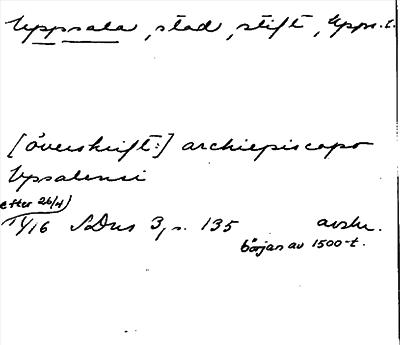 Uppsala, stad, stift, Upps. l.
[överskrift:] archiepiscopo
Upsalensi
efter 26/4)
1416 SDns 3, s. 135 avskr.
början av 1500-t.